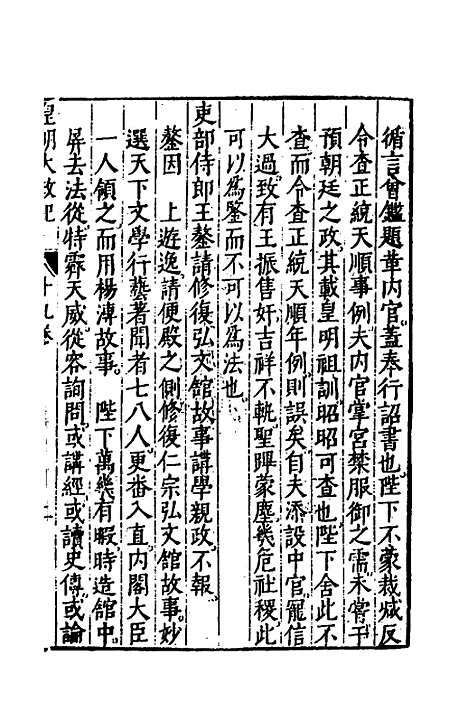 循言會鑑題革内官蓋奉行詔書也陛下不蒙裁减反
令查正統天順事例夫内官掌宫禁服御之需未嘗干
預朝廷之政其載皇明祖訓昭昭可查也陛下舍此不
查而令查正統天順年例則誤矣自夫添設中官寵信
大過致有王振售奸吉祥不軌聖蹕蒙塵幾危社稷此
可以為鑒而不可以為法也
吏部侍郎王鏊請修復弘文館故事講學親政不報
鏊因 上遊逸請便殿之側修復仁宗弘文館故事妙
選天下文學行藝著聞者七八人更番入直内閣大臣
一人領之而用楊溥故事 陛下萬幾有暇時造館中
屏去法從特霽天威從容詢問或講經或讀史傳或論
皇明大政記 十九卷